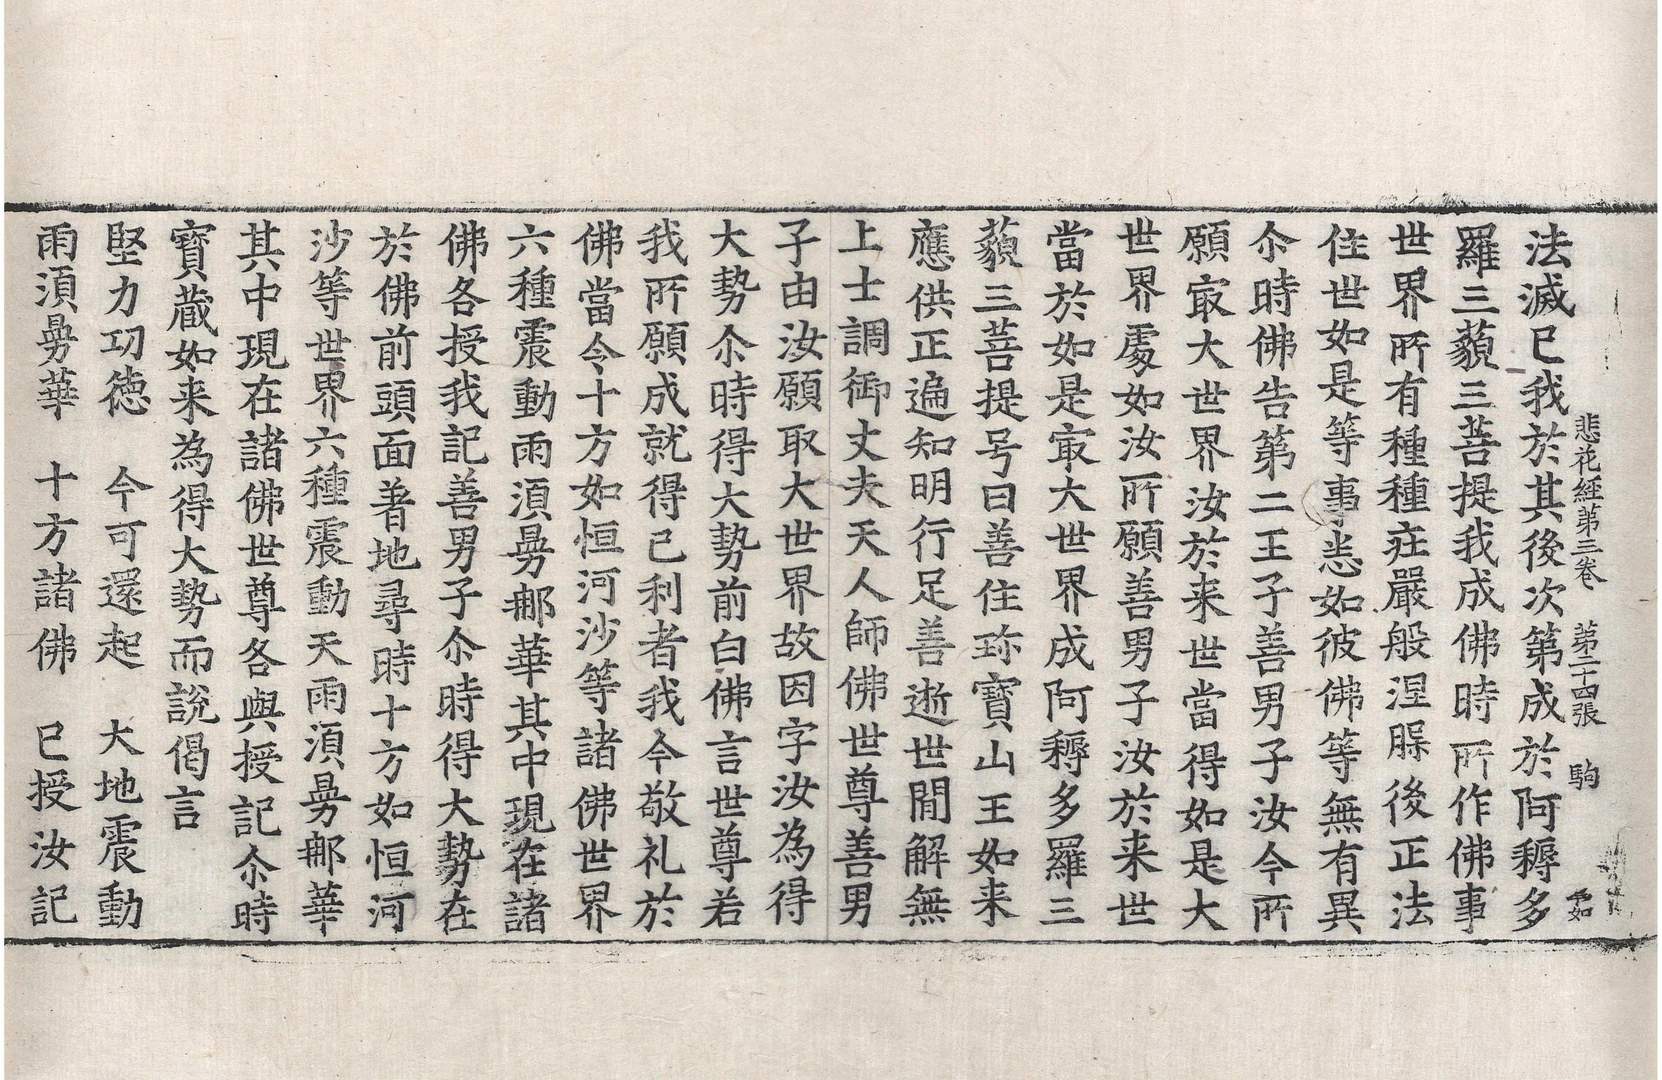 悲花經第三卷　第二十四張　駒
法滅已我於其後次第成於阿耨多
羅三藐三菩提我成佛時所作佛事
世界所有種種莊嚴般涅槃後正法
住世如是等事悉如彼佛等無有異
尒時佛告第二王子善男子汝今所
願㝡大世界汝於来世當得如是大
世界處如汝所願善男子汝於来世
當於如是㝡大世界成阿耨多羅三
藐三菩提号曰善住珎寶山王如来
應供正遍知明行足善逝世間解無
上士調御丈夫天人師佛世尊善男
子由汝願取大世界故因字汝為得
大勢尒時得大勢前白佛言世尊若
我所願成就得己利者我今敬礼於
佛當令十方如恒河沙等諸佛世界
六種震動雨須曼那華其中現在諸
佛各授我記善男子尒時得大勢在
於佛前頭面著地尋時十方如恒河
沙等世界六種震動天雨須曼那華
其中現在諸佛世尊各與授記尒時
寶蔵如来為得大勢而說偈言
堅力功德　今可還起　大地震動
雨須曼華　十方諸佛　已授汝記